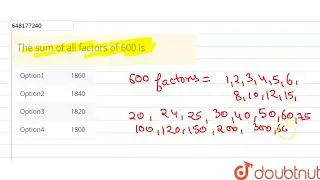 648177240
The sum of all factors of 600 is
Option1 1860
Option2 1840
Option3 1820
Option4 1800
600 factors = 1,2,3,4,5,6,
8,10,12,15,
20, 24, 25, 30,40, 50,60,75
100,120,150,200, 300,60
doubtnut